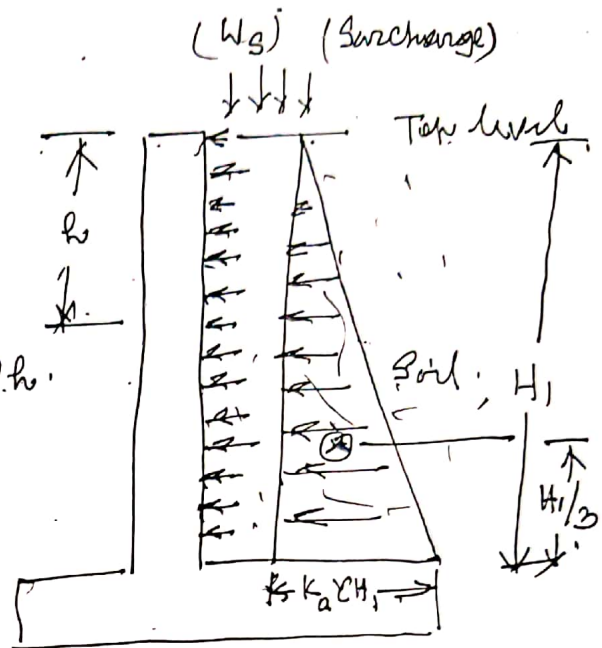 (Ws) (Surcharge)
Top level
h
h.
Soil, H₁
H₁/3
KₐγH₁